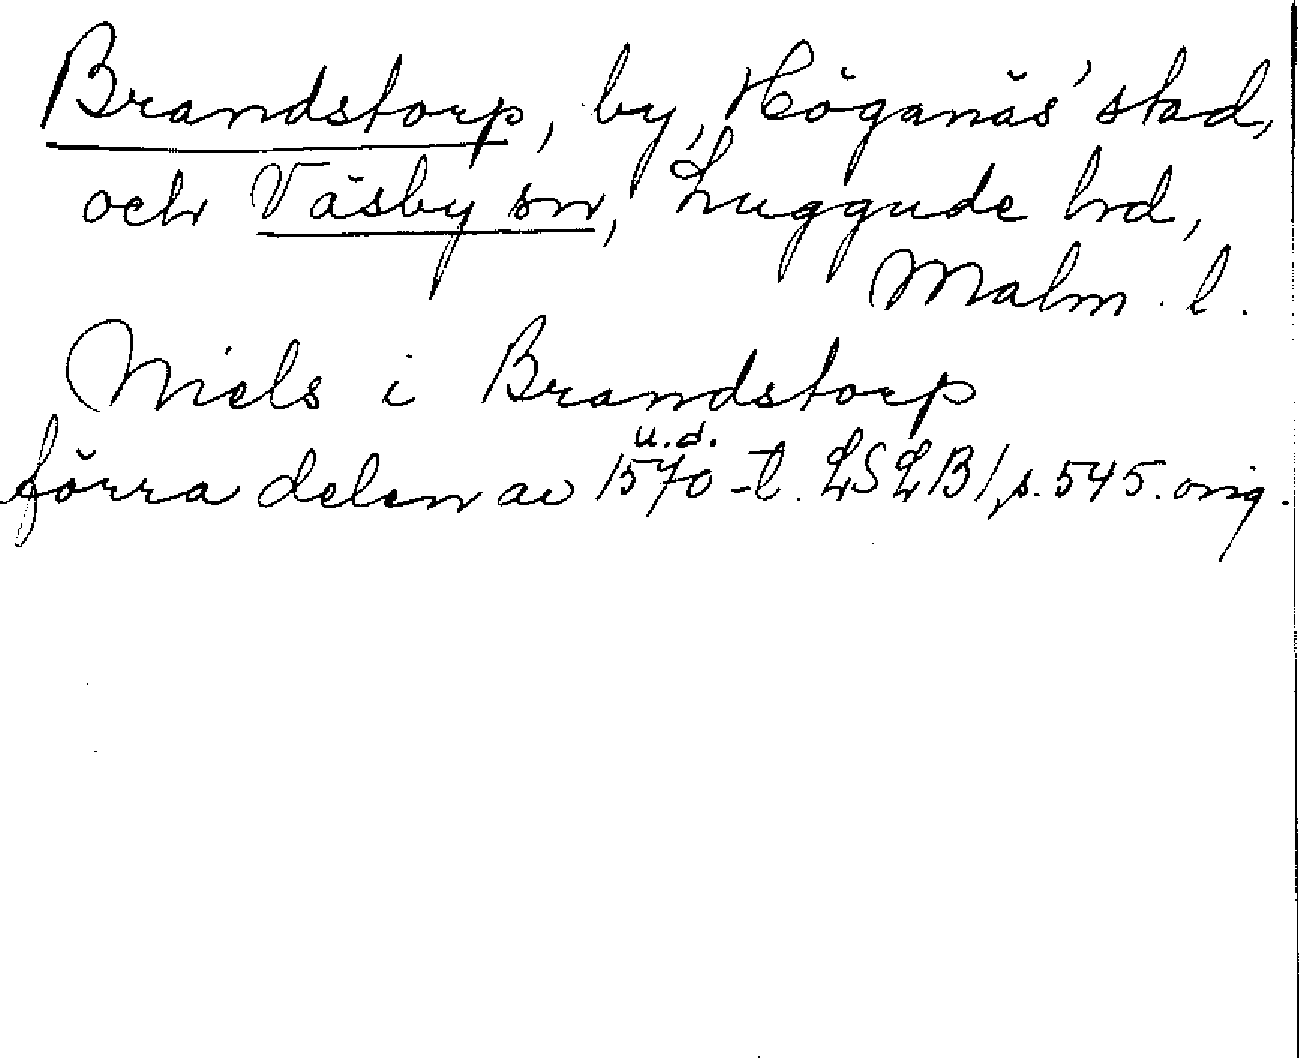 Brandstorp, by, Höganäs stad,
och Väsby sn, Luggude hd,
Malm. l.
Niels i Brandstorp
u.d.
förra delen av 1570-t. LSLB 1 s. 545. orig.